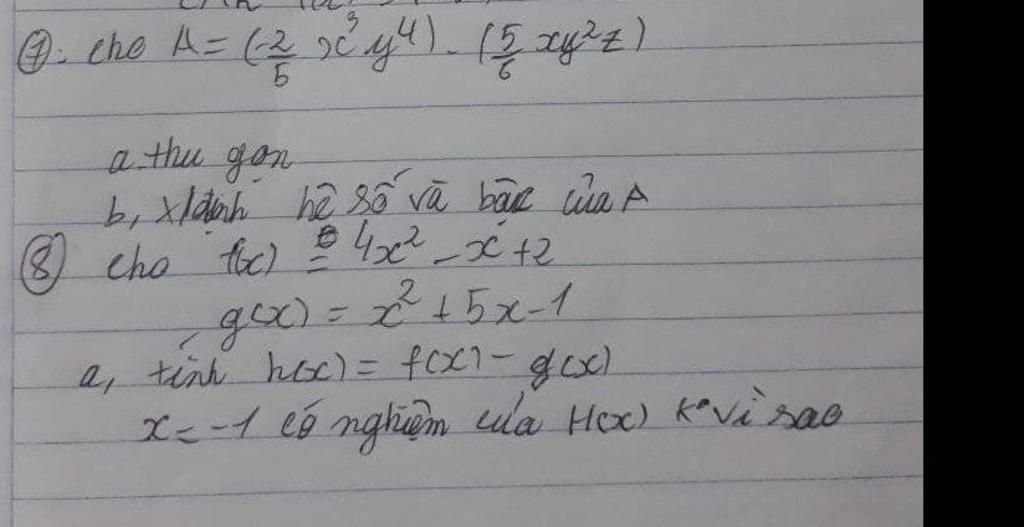 ⑦: cho A = (-2/5 x³y⁴) . (5/6 xy²z)
a. thu gọn
b, x/định hệ số và bậc của A
⑧ cho f(x) = 4x² - x + 2
g(x) = x² + 5x - 1
a, tính h(x) = f(x) - g(x)
x = -1 có nghiệm của H(x) k° vì sao